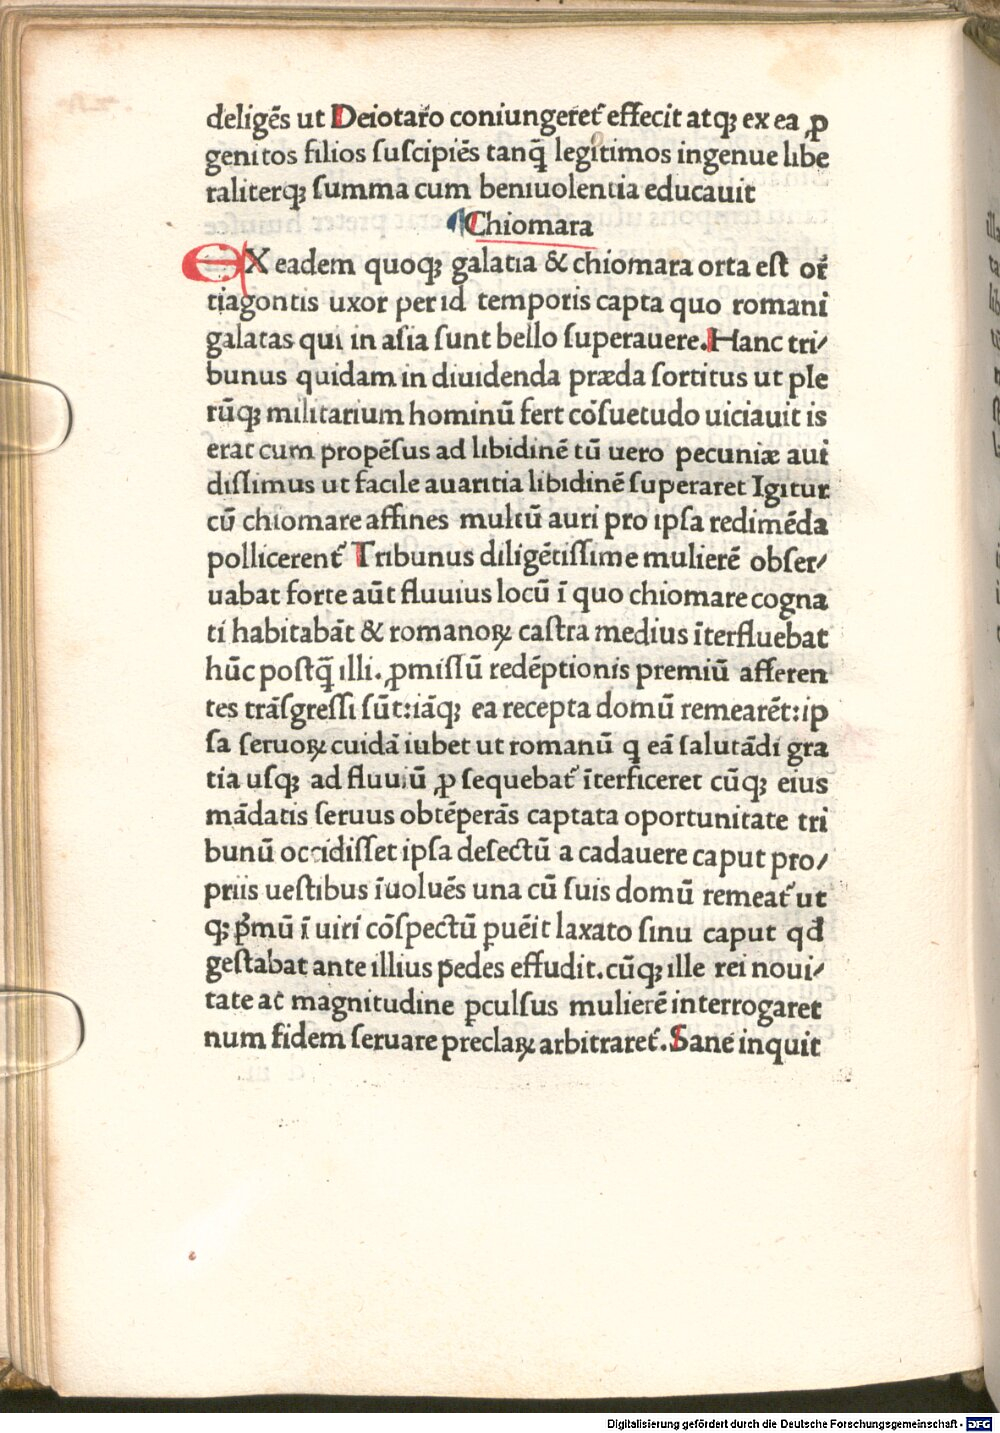 deligēs ut Deiotaro coniungeret᷑ effecit atqꝫ ex ea ꝓ
genitos filios ſuſcipiēs tanq̄ legitimos ingenue libe
raliterqꝫ ſumma cum beniuolentia educauit
¶Chiomara
EX eadem quoqꝫ galatia & chiomara orta eſt or̄
tiagontis uxor per id temporis capta quo romani
galatas qui in aſia ſunt bello ſuperauere. Hanc tri/
bunus quidam in diuidenda præda ſortitus ut ple
rūqꝫ militarium hominū fert cōſuetudo uiciauit is
erat cum propēſus ad libidinē tū uero pecuniæ aui
diſſimus ut facile auaritia libidinē ſuperaret Igitur
cū chiomare affines multū auri pro ipſa redimēda
pollicerent᷑ Tribunus diligētiſſime mulierē obſer/
uabat forte aūt fluuius locū ī quo chiomare cogna
ti habitabāt & romanoꝝ caſtra medius īterfluebat
hūc poſtq̄ illi. ꝓmiſſū redēptionis premiū afferen
tes trāſgreſſi ſūt:iāqꝫ ea recepta domū remearēt:ip
ſa ſeruoꝝ cuidā iubet ut romanū q eā ſalutādi gra
tia uſqꝫ ad fluuiū ꝓ ſequebat᷑ īterficeret cūqꝫ eius
mādatis ſeruus obtēperās captata oportunitate tri
bunū occidiſſet ipſa deſectū a cadauere caput pro/
priis ueſtibus īuoluēs una cū ſuis domū remeat᷑ ut
qꝫ pͥmū ī uiri cōſpectū ꝑuēit laxato ſinu caput qd̄
geſtabat ante illius pedes effudit. cūqꝫ ille rei noui/
tate ac magnitudine ꝑculſus mulierē interrogaret
num fidem ſeruare preclaꝝ arbitraret᷑. Sane inquit
Digitalisierung gefördert durch die Deutsche Forschungsgemeinschaft - DFG